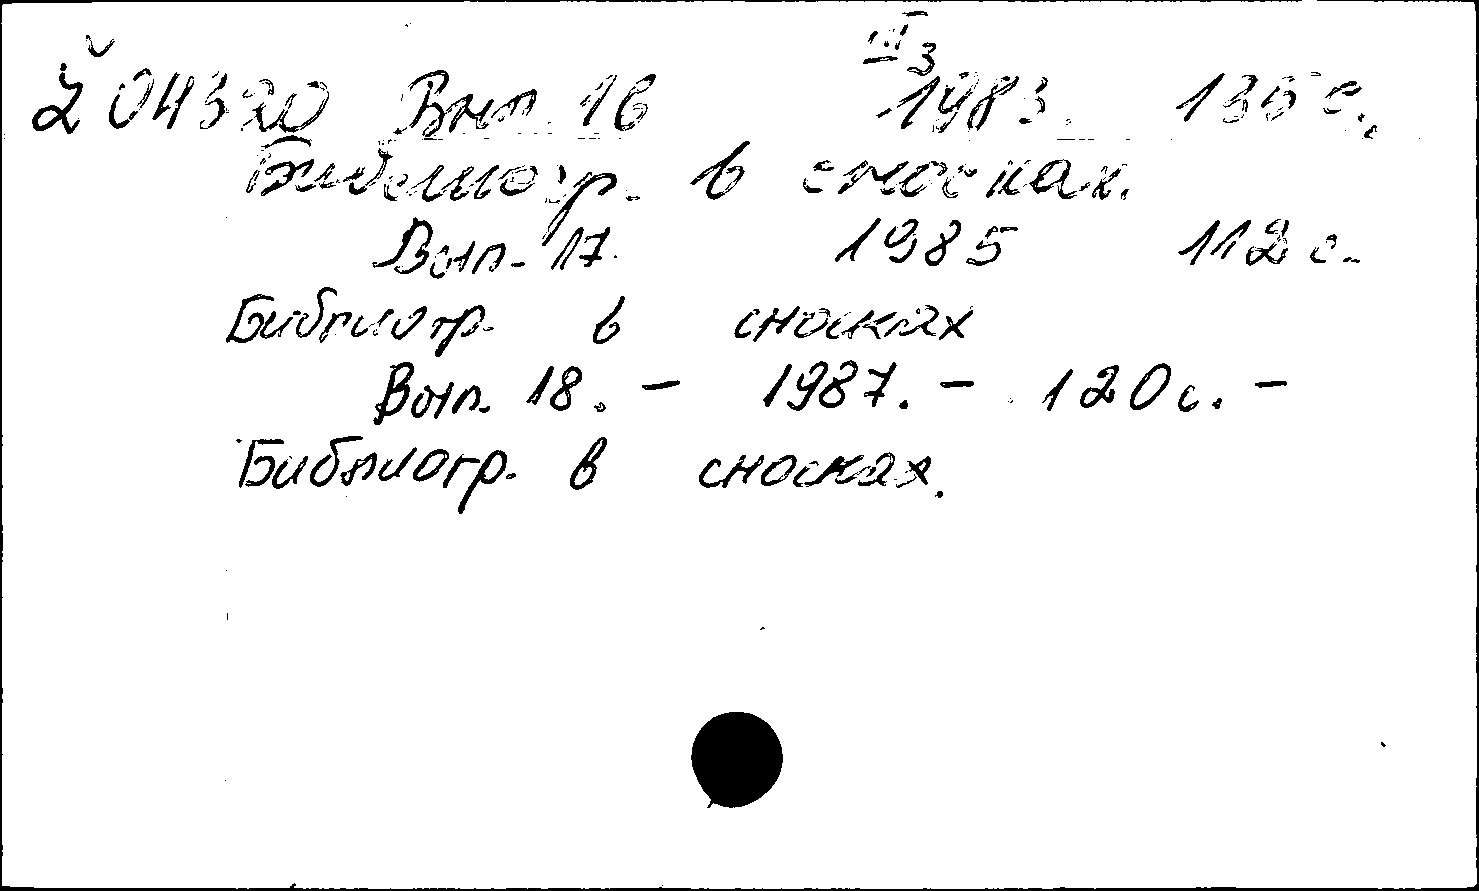 III3
Ž 04320 Вып. 16 1983. 135 с.,
Библиогр. в сносках.
Вып. 17. 1985 112 с.
Библиогр. в сносках
Вып. 18. – 1987. – 120 с. –
Библиогр. в сносках.